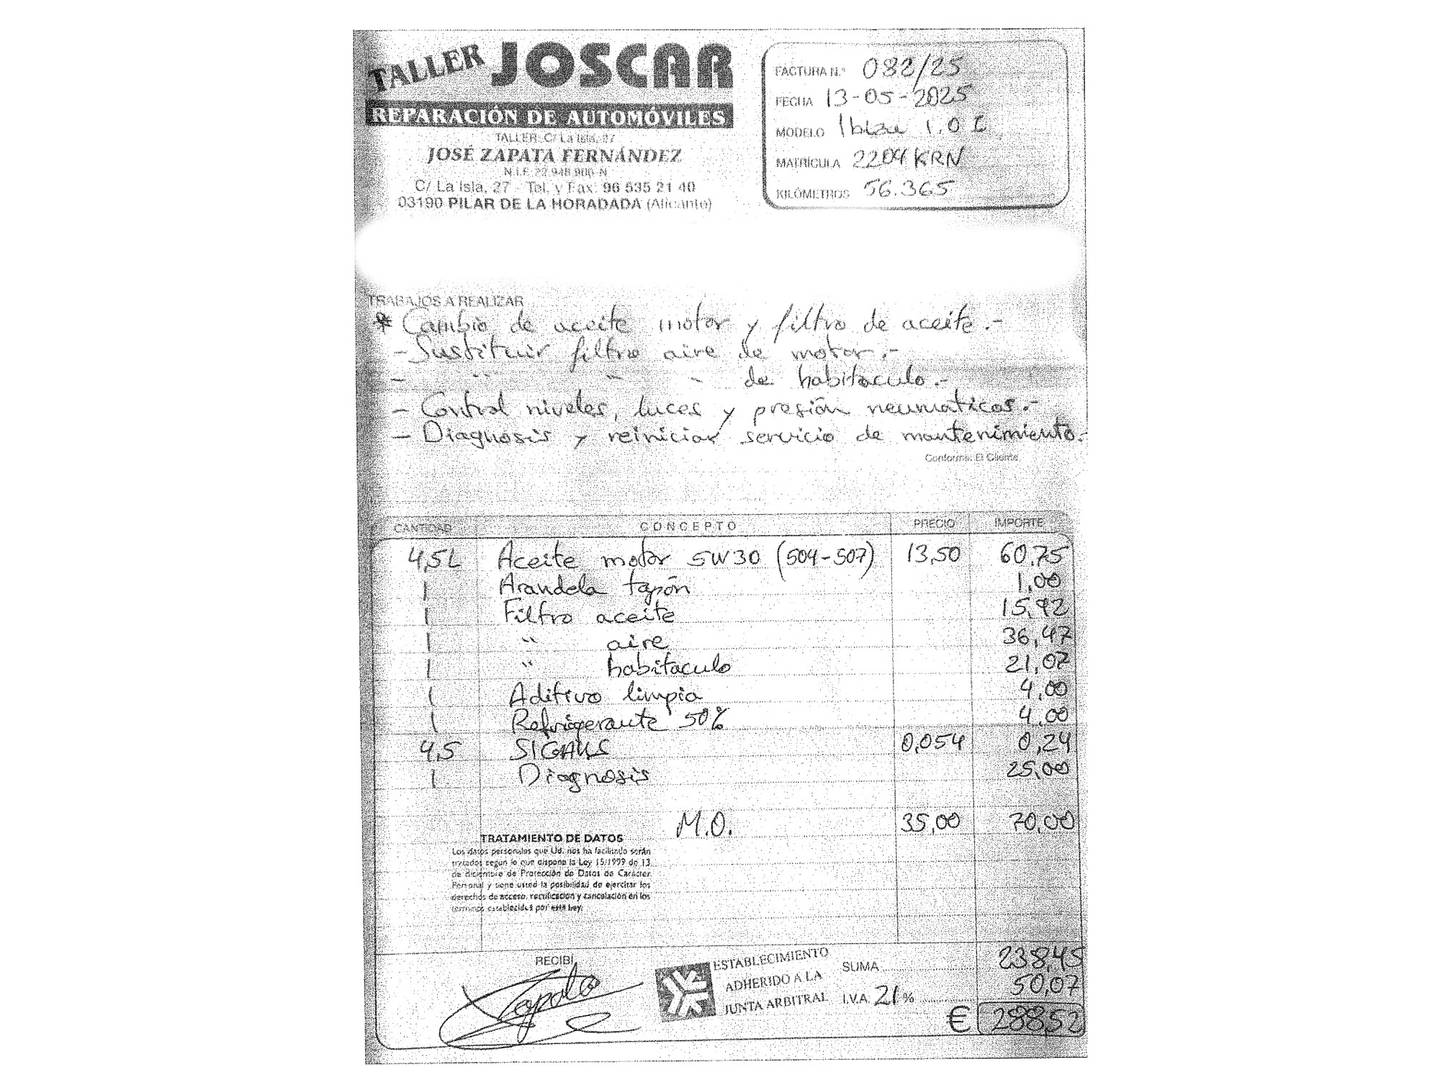 TALLER JOSCAR
REPARACIÓN DE AUTOMÓVILES
TALLER: C/ La Isla, 27
JOSÉ ZAPATA FERNÁNDEZ
N.I.F. 22.948.900-N
C/ La Isla, 27 - Tel. y Fax: 96 535 21 40
03190 PILAR DE LA HORADADA (Alicante)
FACTURA N.º 082/25
FECHA 13-05-2025
MODELO Ibiza 1.0
MATRÍCULA 2204 KRN
KILÓMETROS 56.365
TRABAJOS A REALIZAR
* Cambio de aceite motor y filtro de aceite.-
- Sustituir filtro aire de motor.-
- " " " de habitaculo.-
- Control niveles, luces y presión neumaticos.-
- Diagnosis y reiniciar servicio de mantenimiento.
Conforme: El Cliente
CANTIDAD CONCEPTO PRECIO IMPORTE
4,5L Aceite motor 5W30 (504-507) 13,50 60,75
1 Arandela tapón 1,00
1 Filtro aceite 15,92
1 " aire 36,47
1 " habitaculo 21,07
1 Aditivo limpia 4,00
1 Refrigerante 50% 4,00
4,5 SIGAUS 0,054 0,24
1 Diagnosis 25,00
M.O. 35,00 70,00
TRATAMIENTO DE DATOS
Los datos personales que Ud. nos ha facilitado serán
tratados segun lo que dispone la Ley 15/1999 de 13
de diciembre de Protección de Datos de Carácter
Personal y tiene usted la posibilidad de ejercitar los
derechos de acceso, rectificacion y cancelación en los
términos establecidos por esta Ley.
RECIBÍ,
Zapata
ESTABLECIMIENTO
ADHERIDO A LA
JUNTA ARBITRAL
SUMA 238,45
I.V.A. 21 % 50,07
€ 288,52